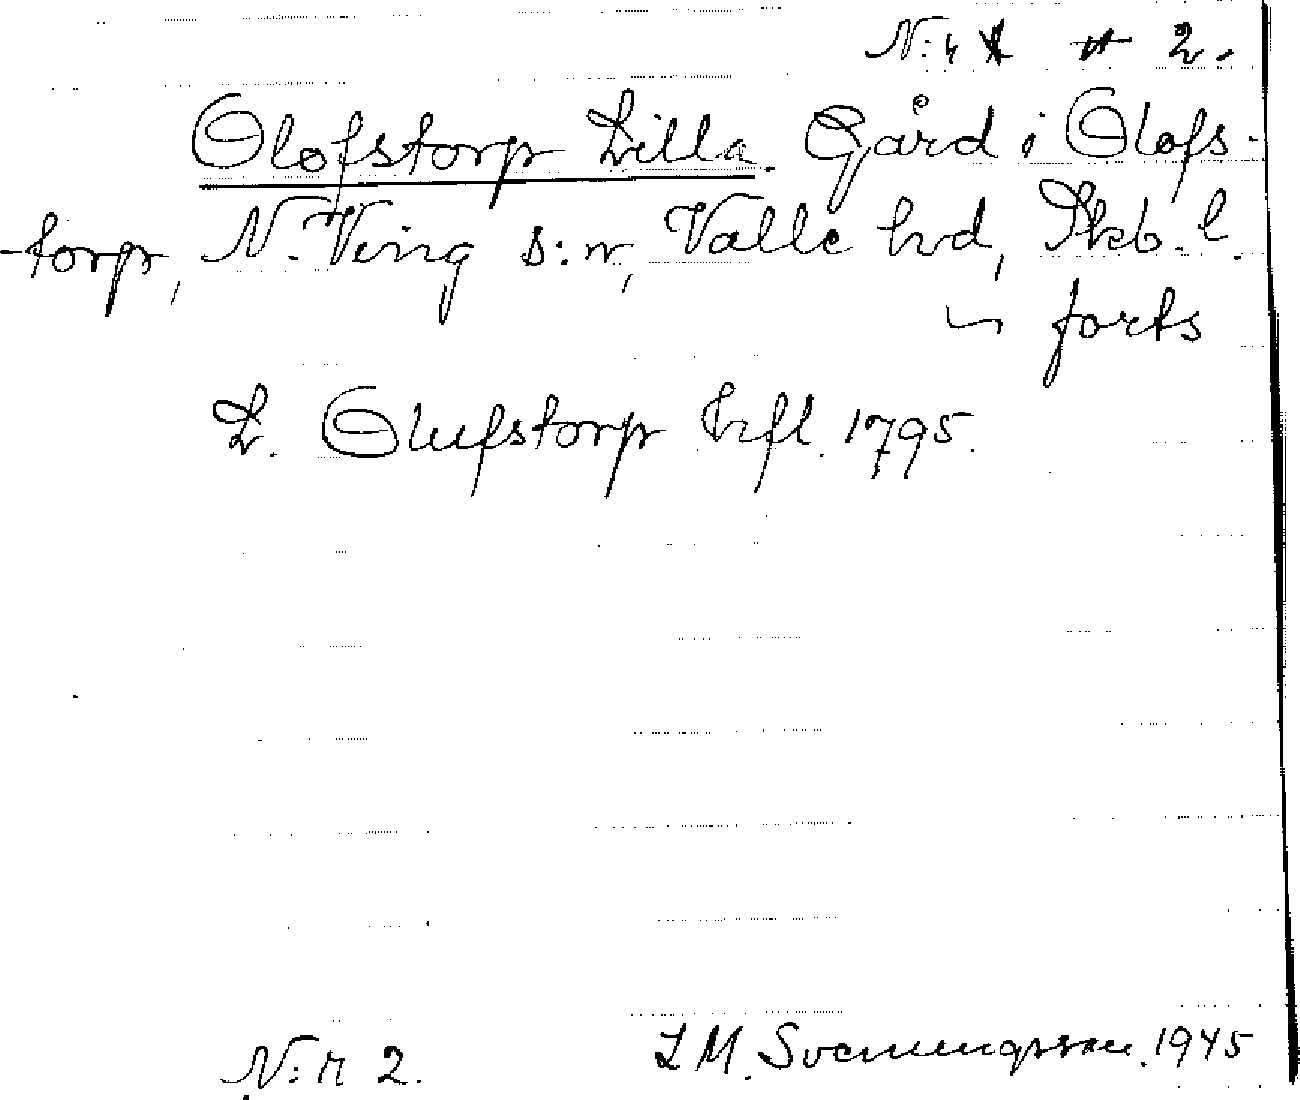 N:r 2.
Olofstorp Lilla. Gård i Olofs-
-torp, N. Ving s:n, Valle hd, Skb. l.
forts
L. Olufstorp hfl. 1795.
N:r 2. L M. Svenungsson. 1945